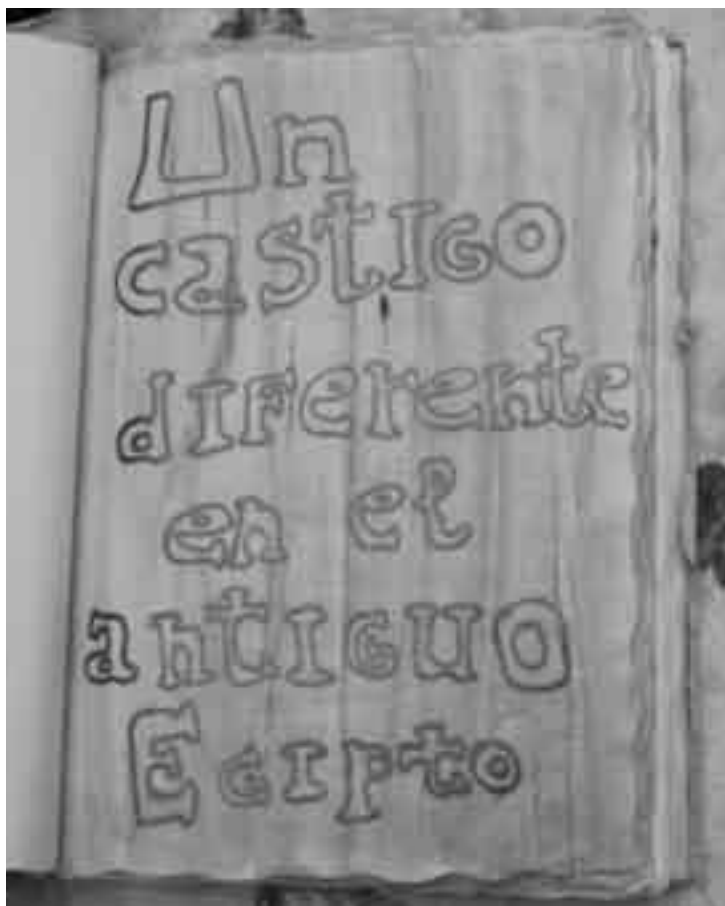 Un
castIGO
dIFerente
en el
antIGUO
EGIpto